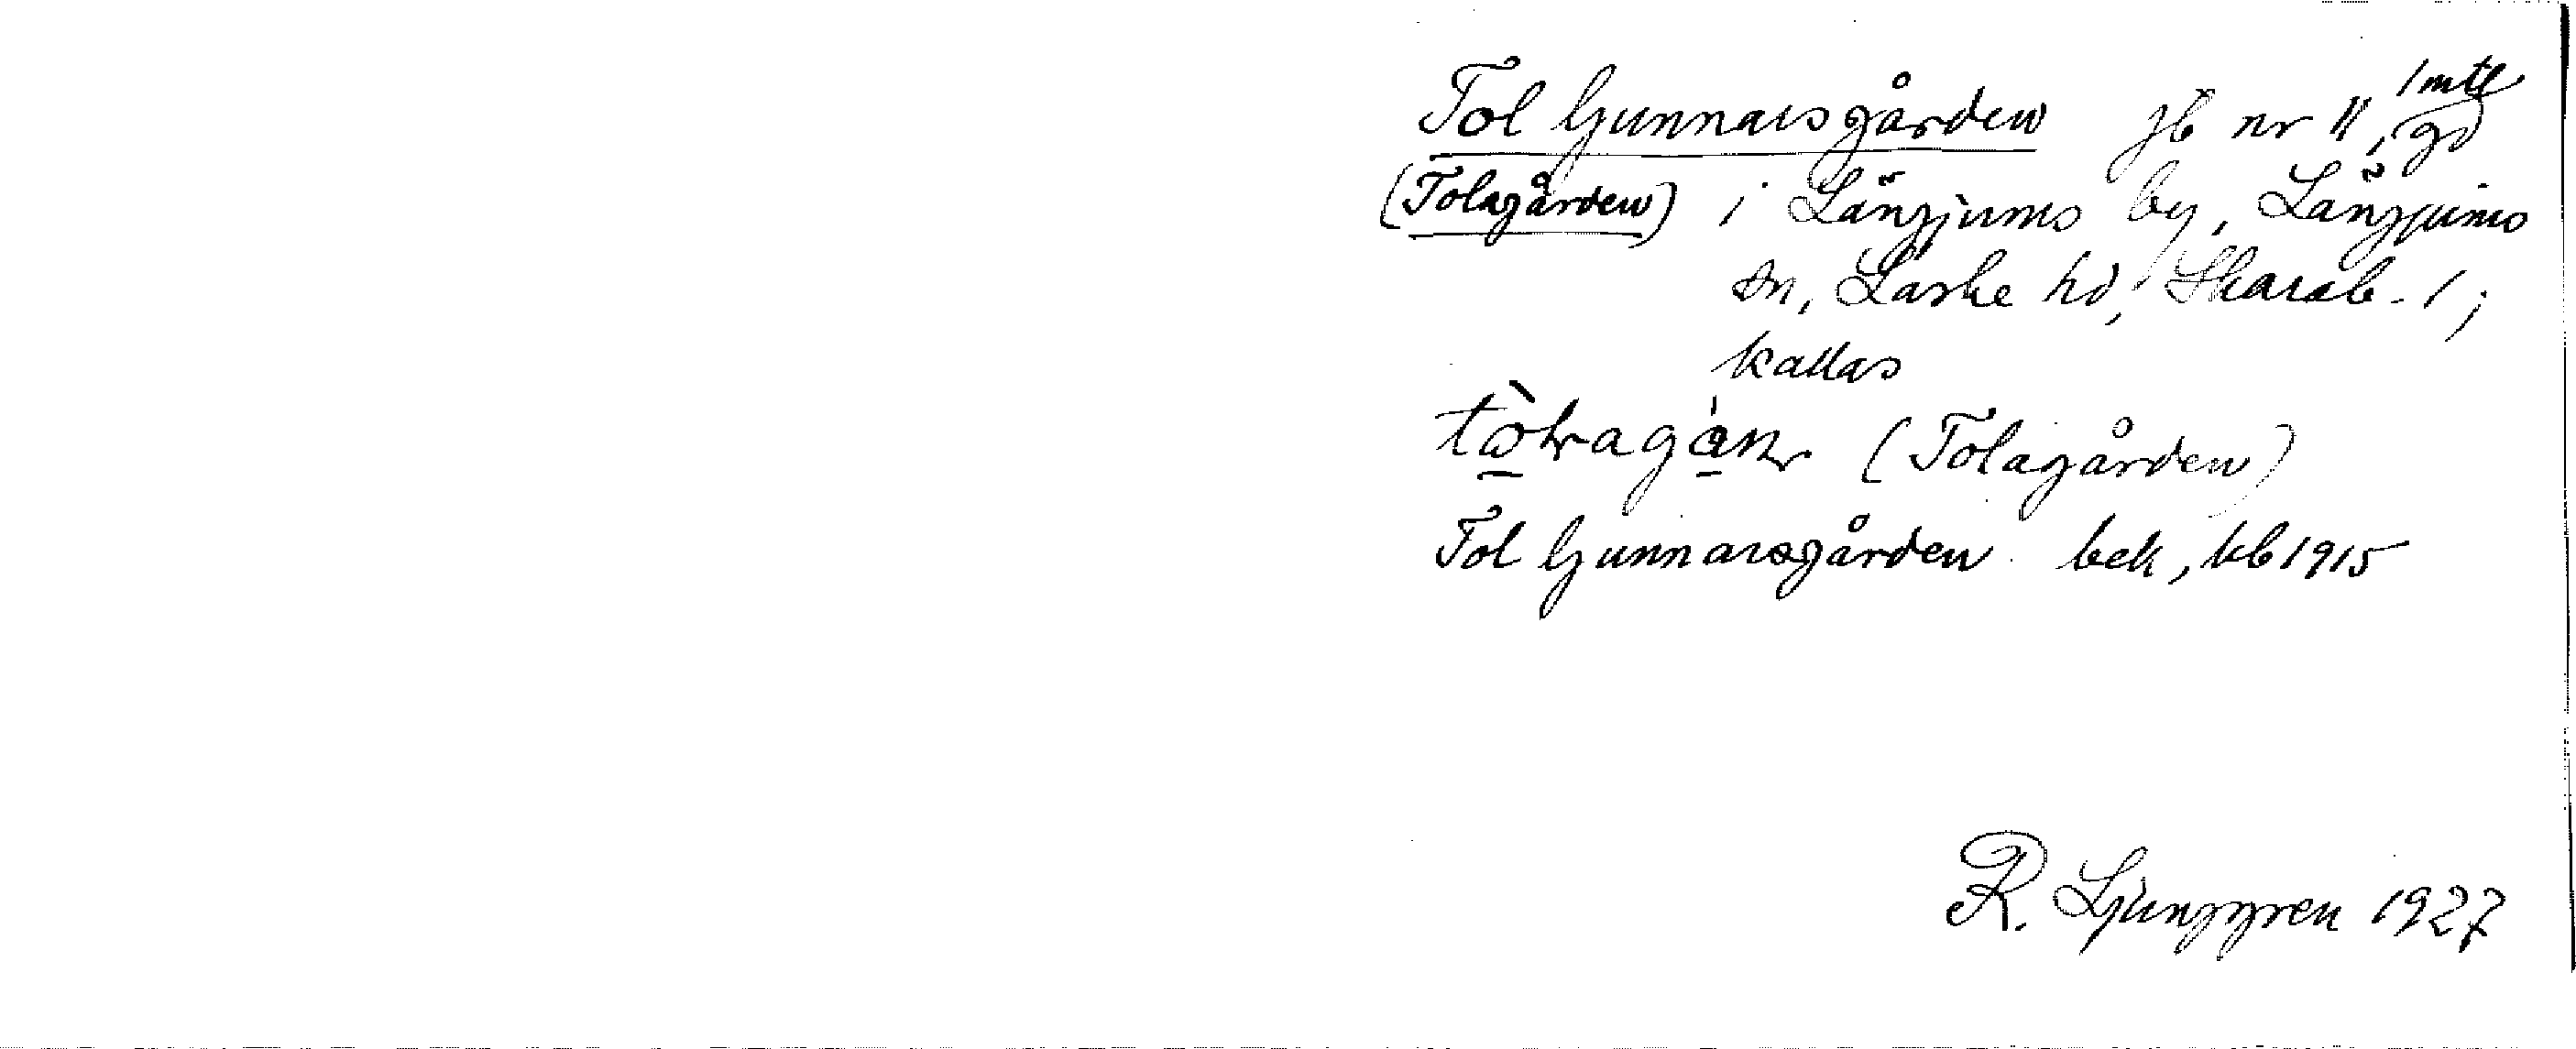 Tol Gunnarsgården jb nr 11, 1 mtl gd
(Tolagården) i Långjums by, Långjums
sn, Laske hd, Skarab. l;
kallas
(Tolagården)
Tol Gunnarsgården bek, kb 1915
R. Ljunggren 1927